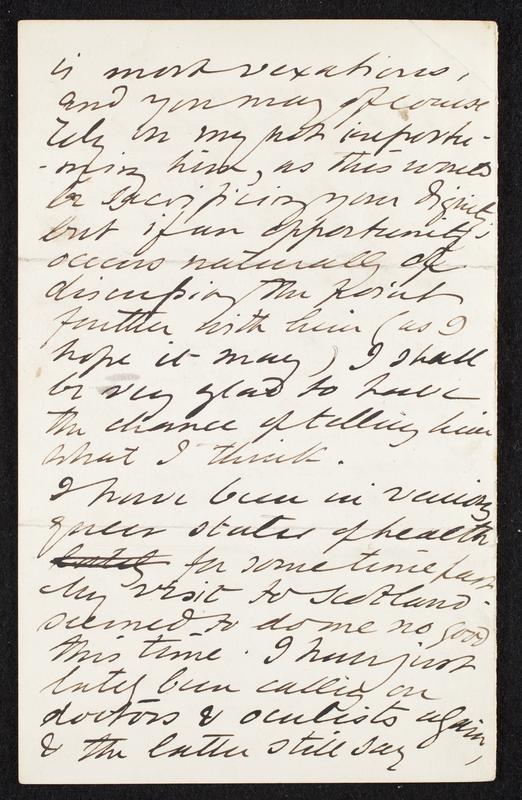 is most vexatious,
and you may of course
rely on my not importu-
-ning him, as this would
be sacrificing your dignity;
but if an opportunity
occurs naturally of
discussing the point
further with him (as I
hope it may) I shall
be very glad to have
the chance of telling him
what I think.
I have been in various
queer states of health
lately for some time past
My visit to Scotland
seemed to do me no good
this time. I have just
lately been calling on
doctors & oculists again,
& the latter still say